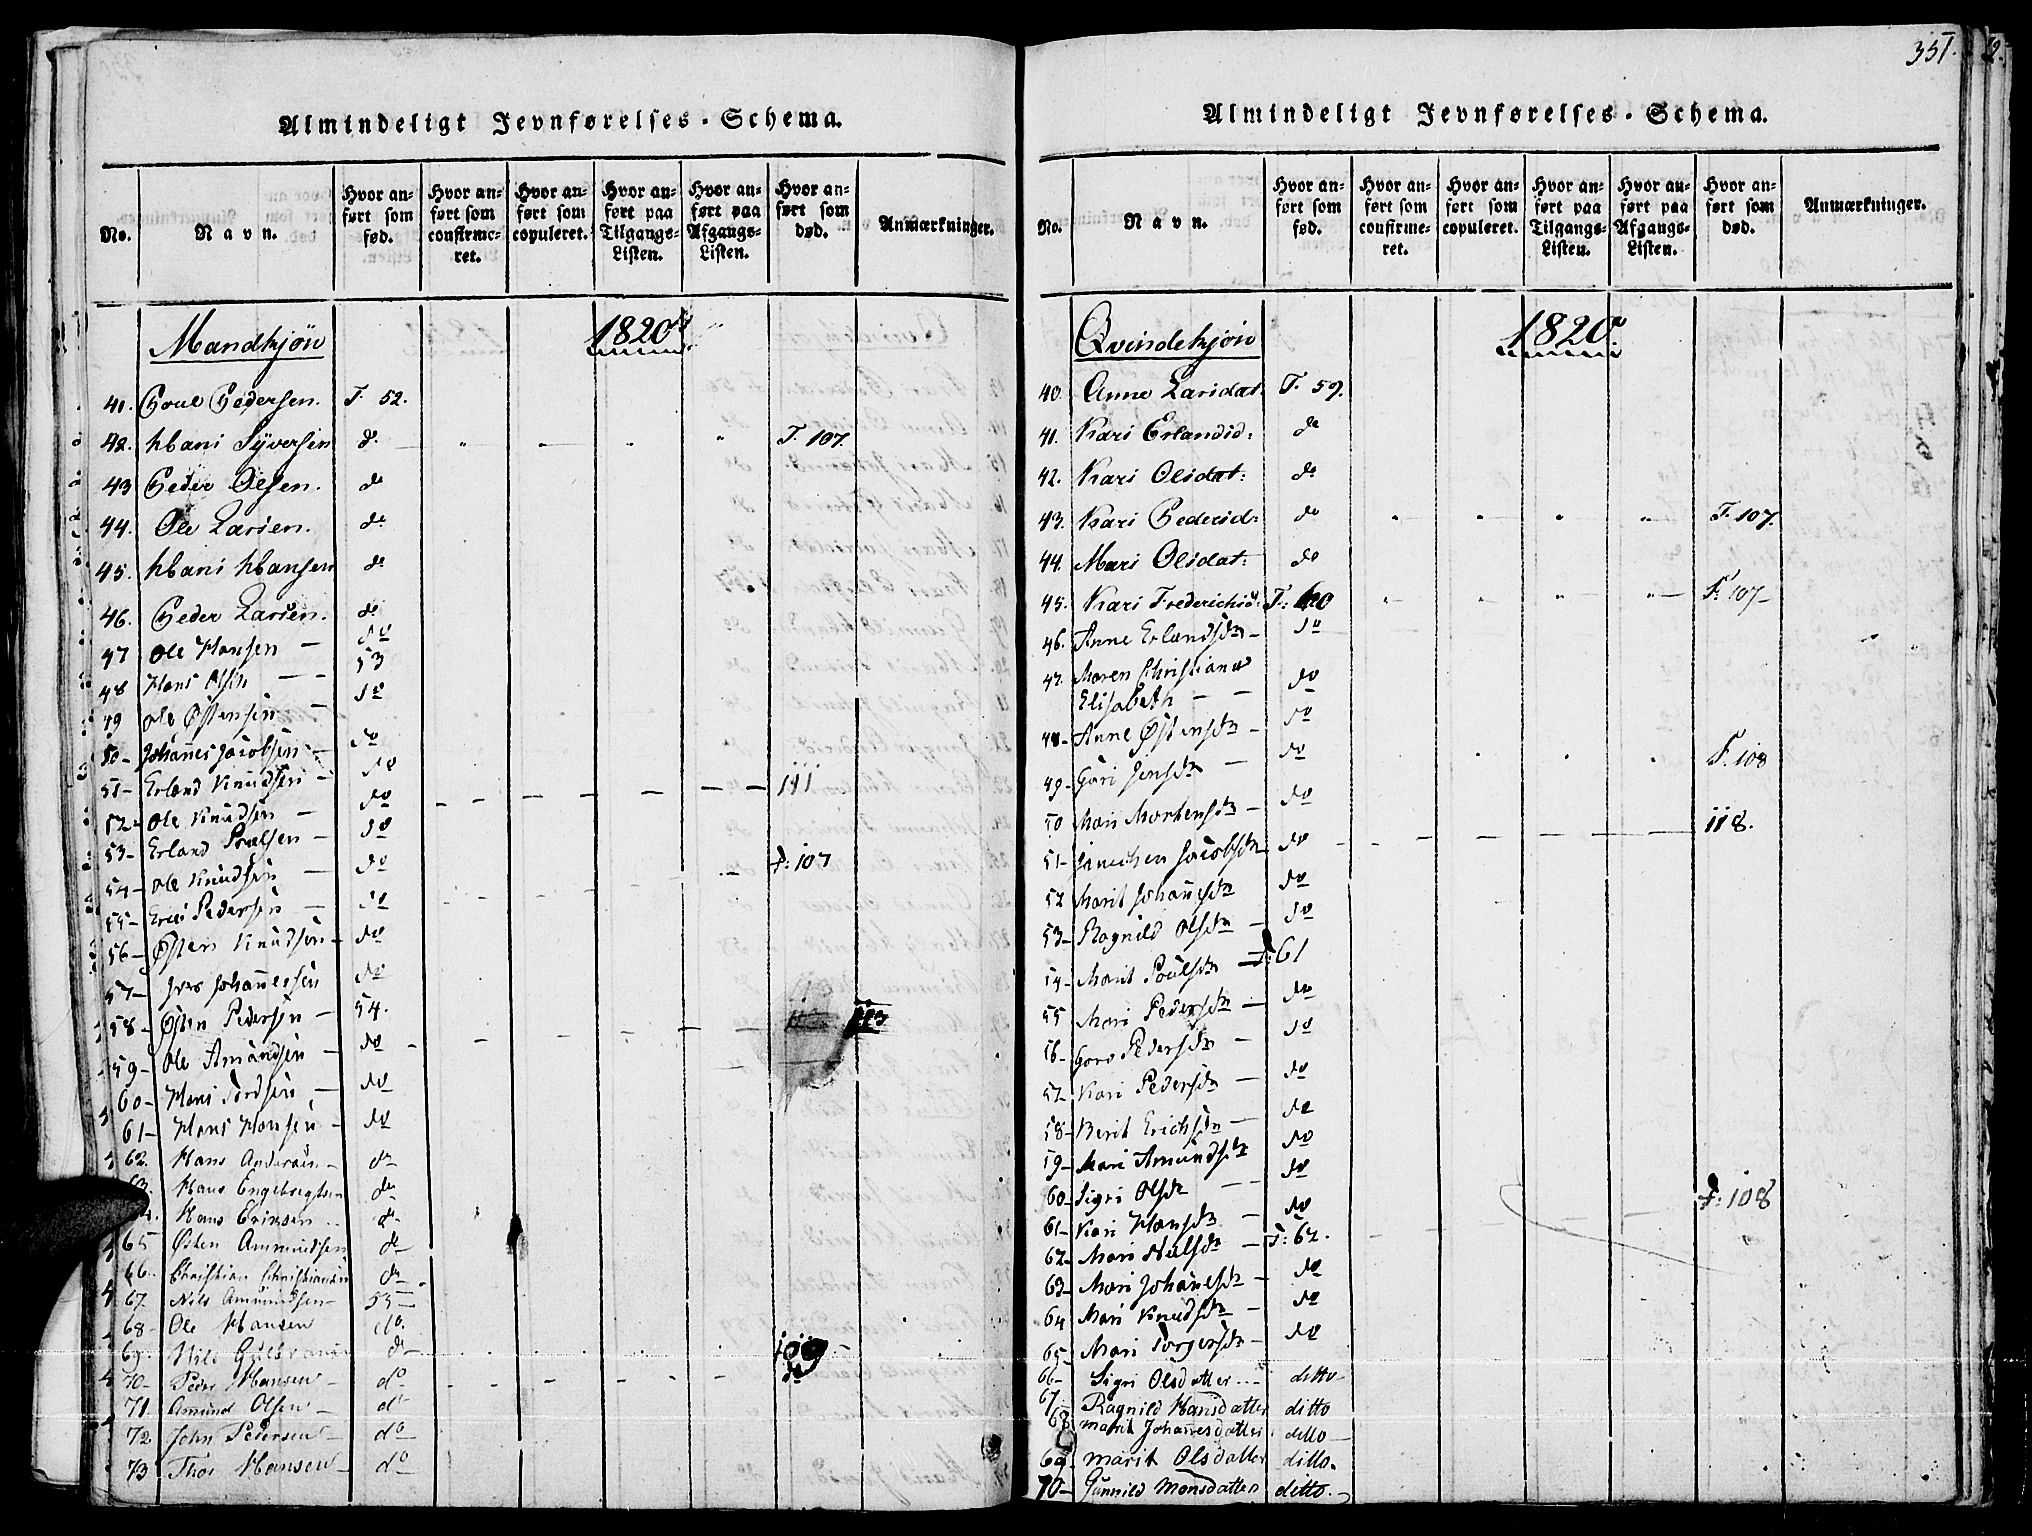 Almindeligt Jevnførelses-Schema.
No.
Navn.
Hvor anført som fød.
Hvor anført som confirmeret.
Hvor anført som copuleret.
Hvor anført paa Tilgangs-Listen.
Hvor anført paa Afgangs-Listen.
Hvor anført som død.
Anmærkninger.
Mandkjøn 1820
41. Poul Pedersen. F. 52.
42. Hans Syversen do " " " " F. 107.
43 Peder Olsen. do
44. Ole Larsen. do
45. Hans Hansen do
46. Peder Larsen. do
47 Ole Hansen — do
48 Hans Olsen — — 53
49 Ole Østensen — do
50— Johannes Jacobsen — do
51— Erland Knudsen — do — — — — — 111
52— Ole Knudsen — do
53— Erland Poulsen — do F: 107
54— Ole Knudsen — do
55— Eric Pedersen — do
56— Østen Knudsen — do
57— Johannessen do
58— Østen Pedersen — 54. 113
59— Ole Amundsen — do
60— Hans — do
61— Hans Hansen — do
62. Hans Andersen — do
63. Hans Engebregtsen do
Hans Eriksen do
65 Østen Ammundsen do
66. Christian Christiansen do
67. Nils Ammundsen — 55 —
68— Ole Hansen do.
69. Nils do 109
70— Peder Hansen — do do
71. Amund Olsen — do
72 John Pedersen — do
73 Thor Hansen — do
351.
Almindeligt Jevnførelses-Schema.
No.
Navn.
Hvor anført som fød.
Hvor anført som confirmeret.
Hvor anført som copuleret.
Hvor anført paa Tilgangs-Listen.
Hvor anført paa Afgangs-Listen.
Hvor anført som død.
Anmærkninger.
Qvindekjøn 1820.
40. Anne Larsdat. F. 59.
41. Kari Erlandsd: do
42. Kari Olsdat: do
43. Kari Pedersd: do " " " " F. 107.
44. Mari Olsdat: do
45. Kari Frederichsd: F: 60 " " " " F: 107—
46. Anne Erlandsdr — do
47. Maren Christiane
Elisabeth — — do
48— Anne Østensdr — do
49— Guri Jensdr — do F. 108
50 Mari Mortensdr — do
51— Jacobsdr do 118.
52 Marit Johannesdr do
53— Ragnild Olsdr — do
54— Marit Poulsdr — F: 61
55 Mari Pedersdr — do
56— Goro Pedersdr — do
57— Kari Pedersdr — do
58— Berit Erichsdr — do
59— Mari Amundsdr do
60— Sigri Olsdr — — do
61— Kari Hansdr — do F: 108
62— Mari Nilsdr — F: 62.
63— Mari Johannesdr — do
64 Mari Knudsdr — do
65— Mari Torgersdr — do
66— Sigri Olsdatter — ditto—
67— Ragnild Hansdatter ditto
68 Marit Johannesdatter ditto—
69— Marit Olsdatter ditto.
70— Gunnild Monsdatter ditto.—